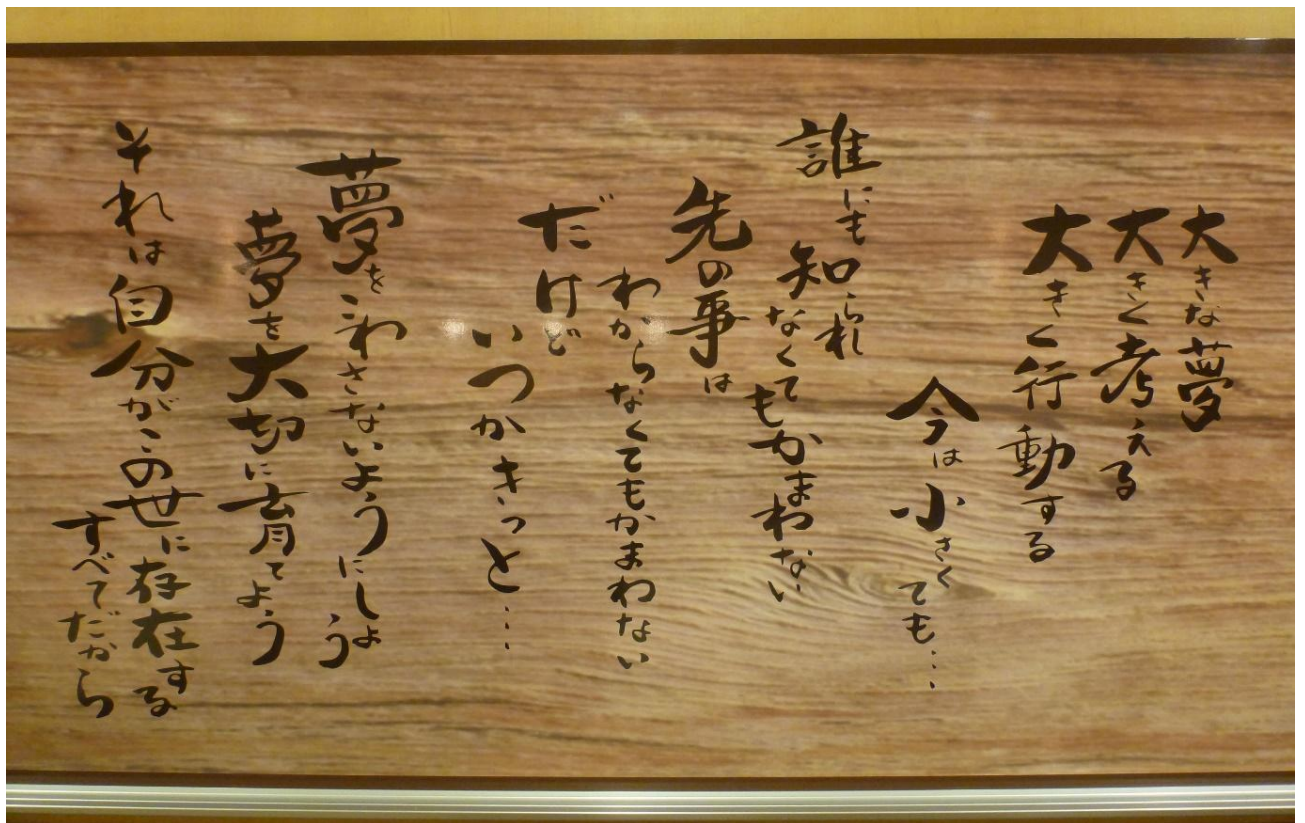 大きな夢
大きく考える
大きく行動する
今は小さくても…
誰にも知られ
なくても
かまわない
先の事は
わからなくてもかまわない
だけど
いつかきっと…
夢をこわさないようにしよう
夢を大切に育てよう
それは自分がこの世に存在する
すべてだから